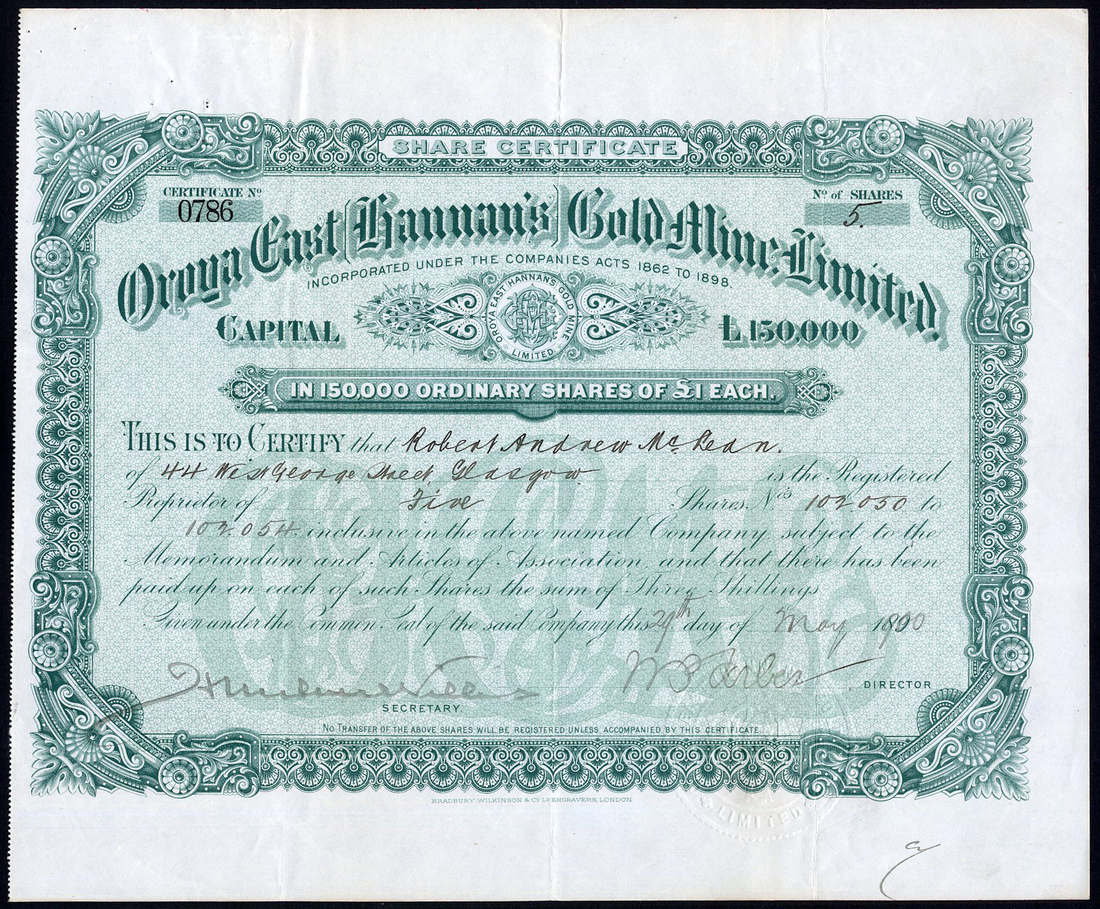 SHARE CERTIFICATE
CERTIFICATE No
0786
No of SHARES
5.
Oroya East Hannan's Gold Mine, Limited.
INCORPORATED UNDER THE COMPANIES ACTS 1862 TO 1898.
OROYA EAST HANNAN'S GOLD MINE
LIMITED
CAPITAL £150,000
IN 150,000 ORDINARY SHARES OF £1 EACH.
THIS IS TO CERTIFY that Robert Andrew Mc
of 44 West George Street, Glasgow is the Registered
Proprietor of Five Shares, Nos 102050 to
102054 inclusive in the above named Company, subject to the
Memorandum and Articles of Association, and that there has been
paid up on each of such Shares the sum of Three Shillings
Given under the Common Seal of the said Company this 29th day of May 1900
DIRECTOR
SECRETARY.
No TRANSFER OF THE ABOVE SHARES WILL BE REGISTERED UNLESS ACCOMPANIED BY THIS CERTIFICATE
BRADBURY, WILKINSON & Co Ld ENGRAVERS, LONDON
LIMITED